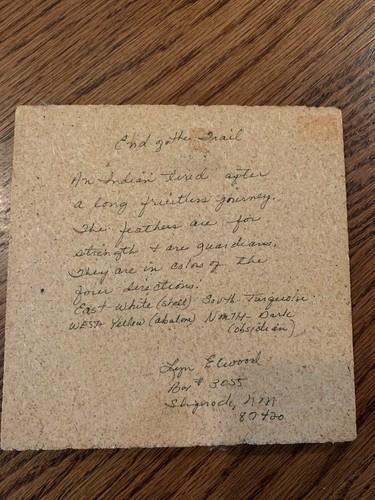 End of the Trail
An Indian tired after
a long fruitless journey.
The feathers are for
strength + are guardians.
They are in colors of the
four directions.
East-White (shell) South-Turquoise
WEST-Yellow (abalone) NORTH-Dark
(obsidian)
Lyn Elwood
Box # 3055
Shiprock, N.M
87420